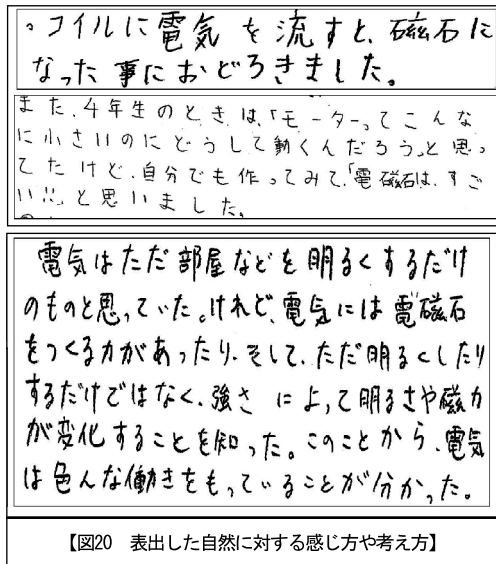 ・コイルに電気を流すと、磁石に
なった事におどろきました。
また、4年生のときは、「モーターってこんな
に小さいのにどうして動くんだろう」と思っ
てたけど、自分でも作ってみて、「電磁石は、すご
い!!」と思いました。
電気はただ部屋などを明るくするだけ
のものと思っていた。けれど、電気には電磁石
をつくる力があったり、そして、ただ明るくしたり
するだけではなく、強さによって明るさや磁力
が変化することを知った。このことから、電気
は色んな働きをもっていることが分かった。
【図20 表出した自然に対する感じ方や考え方】